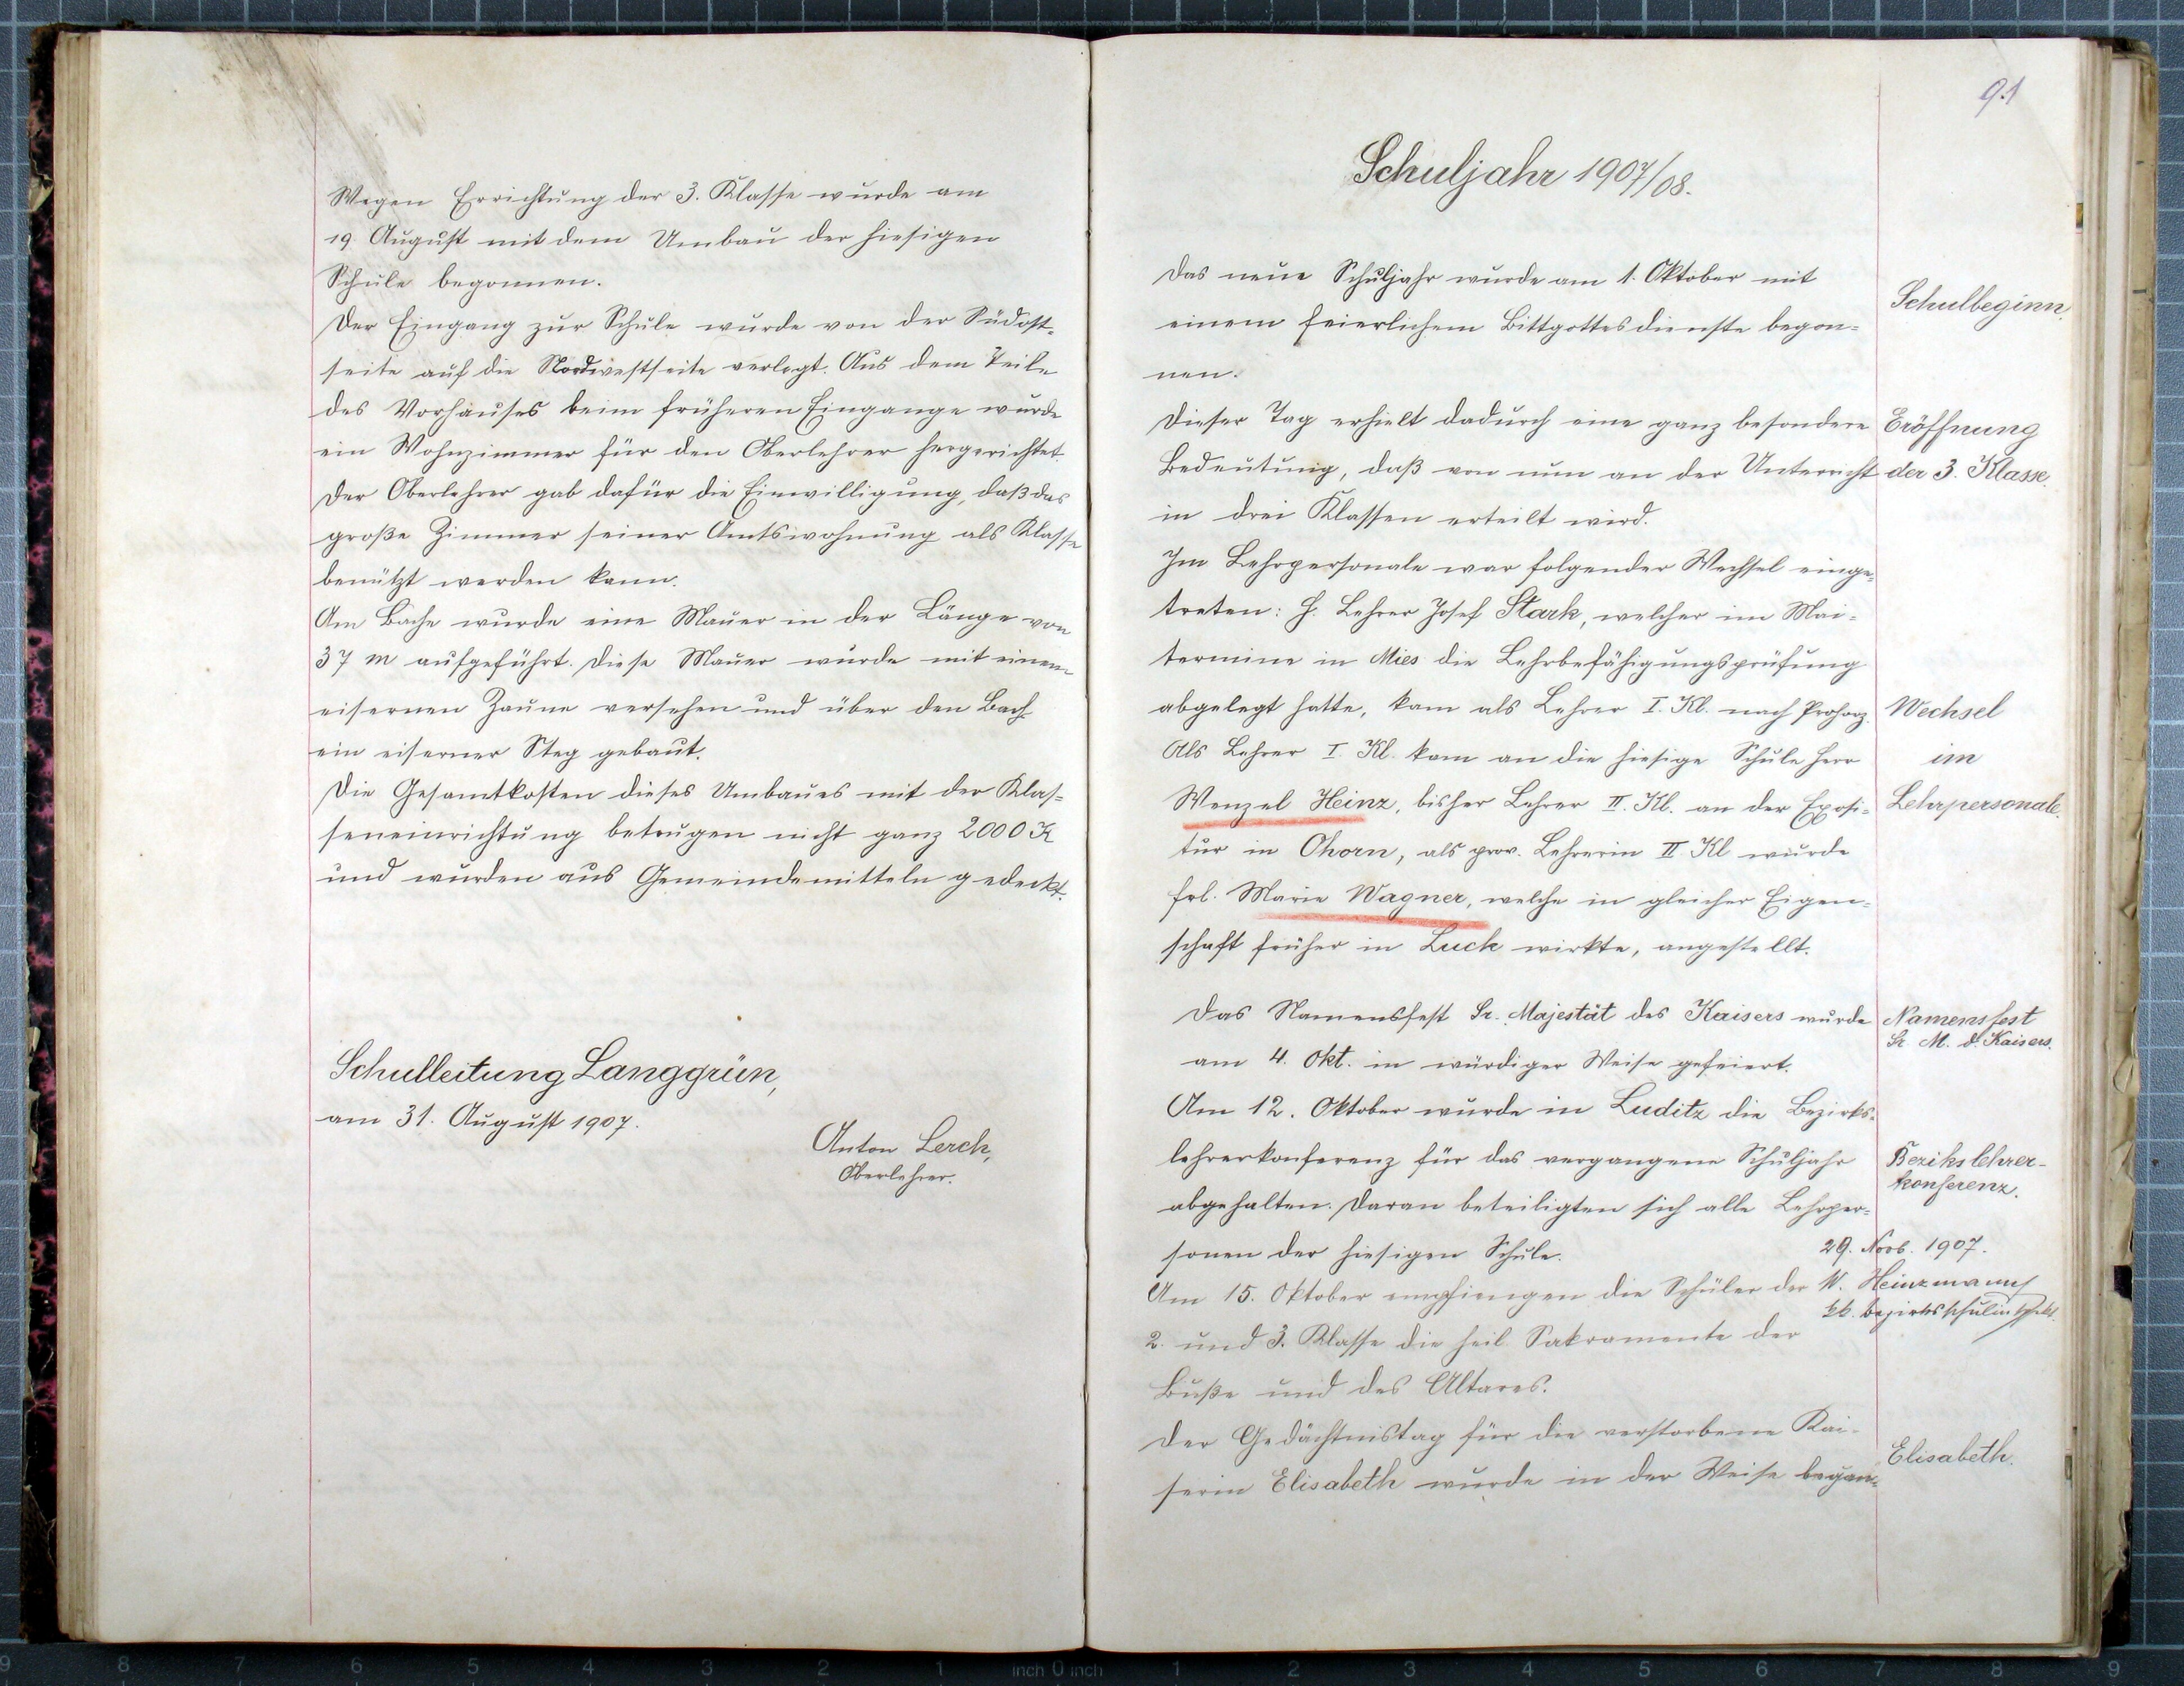 Wegen Errichtung der 3. Klasse wurde am
19. August mit dem Umbau der hiesigen
Schule begonnen.
Der Eingang zur Schule wurde von der Südost-
seite auf die Nordwestseite verlegt. Aus dem Teile
des Vorhauses beim früheren Eingange wurde
ein Wohnzimmer für den Oberlehrer hergerichtet.
Der Oberlehrer gab dafür die Einwilligung, daß das
große Zimmer seiner Amtswohnung als Klasse
benützt werden kann.
Am Bache wurde eine Mauer in der Länge von
37 m aufgeführt. Diese Mauer wurde mit einem
eisernen Zaune versehen und über den Bach
ein eiserner Steg gebaut.
Die Gesamtkosten dieses Umbaues mit der Klas-
seneinrichtung betrugen nicht ganz 2000 K
und wurden aus Gemeindemitteln gedeckt.
Schulleitung Langgrün,
am 31. August 1907.
Anton Lerch,
Oberlehrer.
91
Schuljahr 1907/08.
Das neue Schuljahr wurde am 1. Oktober mit
einem feierlichem Bittgottesdienste begon-
nen.
Schulbeginn.
Dieser Tag erhielt dadurch eine ganz besondere
Bedeutung, daß von nun an der Unterricht
in drei Klassen erteilt wird.
Eröffnung
der 3. Klasse.
Im Lehrpersonale war folgender Wechsel einge-
treten: H. Lehrer Josef Stark, welcher im Mai-
termine in Mies die Lehrbefähigungsprüfung
abgelegt hatte, kam als Lehrer I. Kl. nach Prohorz.
Als Lehrer I. Kl. kam an die hiesige Schule Herr
Wenzel Heinz, bisher Lehrer II. Kl. an der Exposi-
tur in Ohorn, als prov. Lehrerin II. Kl wurde
Frl. Marie Wagner, welche in gleicher Eigen-
schaft früher in Luck wirkte, angestellt.
Wechsel
im
Lehrpersonale.
Das Namensfest Sr. Majestät des Kaisers wurde
am 4. Okt. in würdiger Weise gefeiert.
Namensfest
Sr. M. d. Kaisers.
Am 12. Oktober wurde in Luditz die Bezirks-
lehrerkonferenz für das vergangene Schuljahr
abgehalten. Daran beteiligten sich alle Lehrper-
sonen der hiesigen Schule.
Bezikslehrer-
konferenz.
29. Novb. 1907.
W. Heinzmann
kk. Bezirksschulinspekt.
Am 15. Oktober empfiengen die Schüler der
2. und 3. Klasse die heil. Sakramente der
Buße und des Altares.
Der Gedächtnistag für die verstorbene Kai-
serin Elisabeth wurde in der Weise began-
Elisabeth.
9 8 7 6 5 4 3 2 1 inch 0 inch 1 2 3 4 5 6 7 8 9